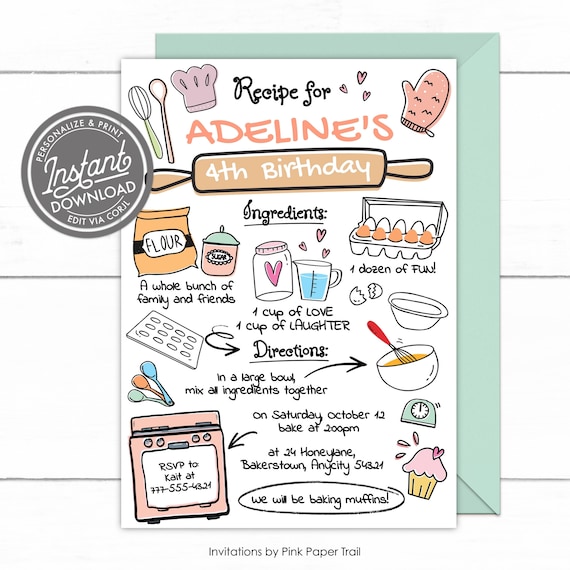 Recipe for
ADELINE'S
4th Birthday
PERSONALIZE & PRINT
Instant
DOWNLOAD
EDIT VIA CORJL
Ingredients:
FLOUR
SUGAR
A whole bunch of
family and friends
1 cup of LOVE
1 cup of LAUGHTER
1 dozen of FUN!
Directions:
in a large bowl,
mix all ingredients together
on Saturday, October 12
bake at 2:00pm
at 24 Honeylane,
Bakerstown, Anycity 54321
RSVP to:
Kait at
777-555-4321
we will be baking muffins!
Invitations by Pink Paper Trail